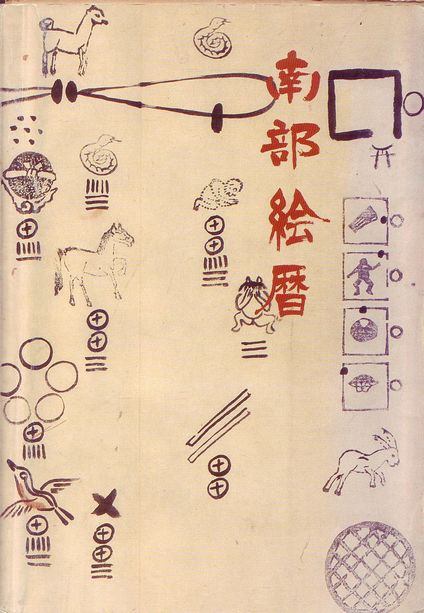 南部絵暦